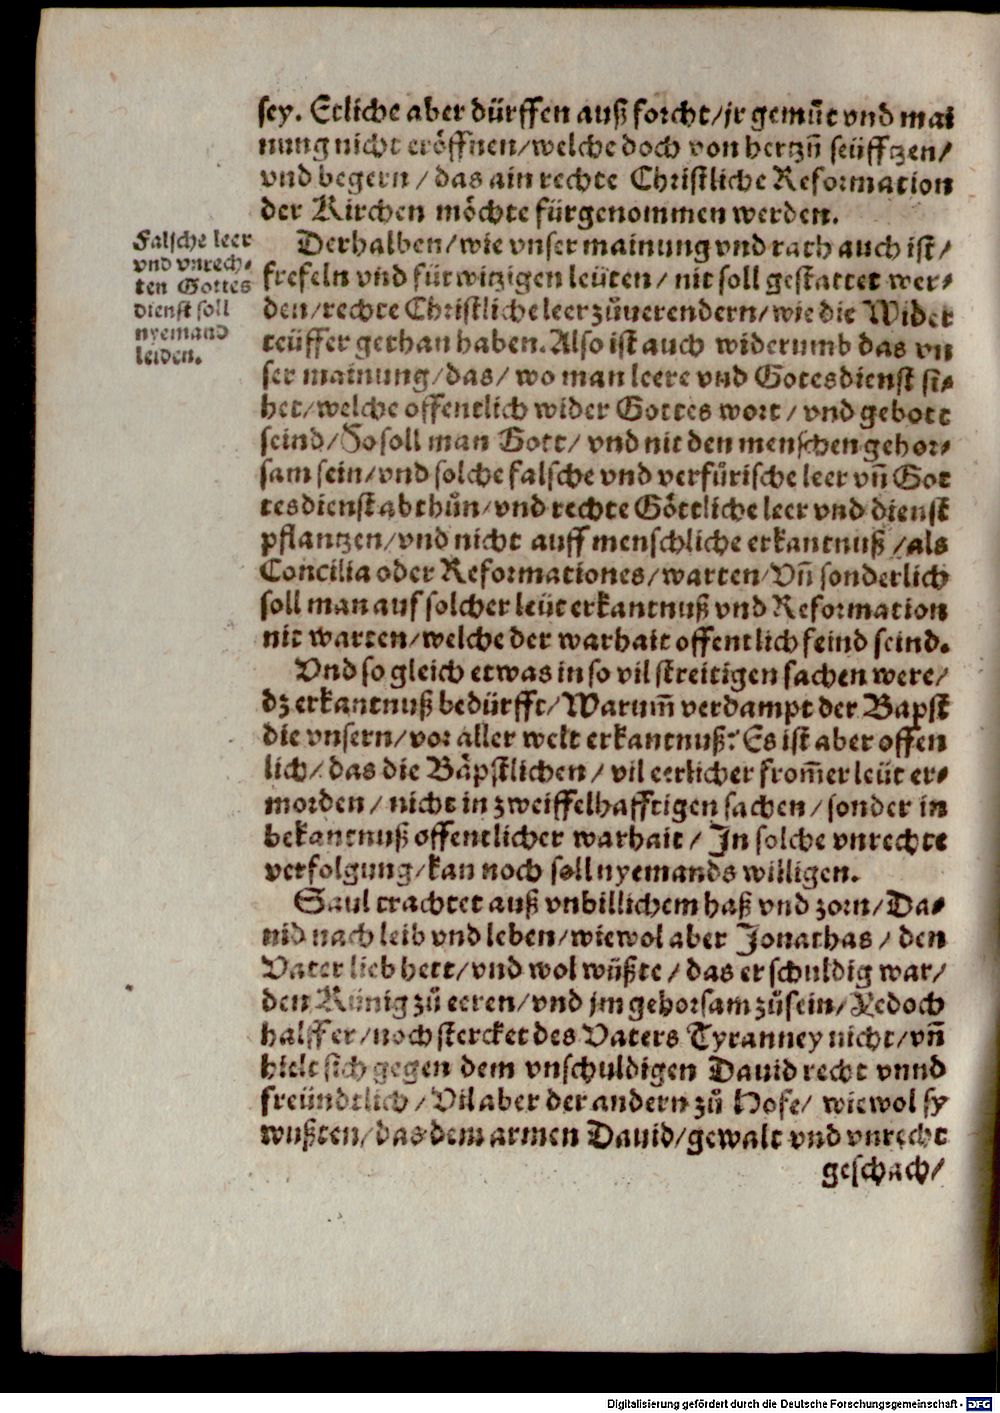 sey. Etliche aber dürffen auß forcht/jr gemüt vnd mai
nung nicht eröffnen/welche doch von hertzñ seüfftzen/
vnd begern / das ain rechte Christliche Reformation
der Kirchen möchte fürgenommen werden.
Falsche leer
vnd vnrech-
ten Gottes
dienst soll
nyemand
leiden.
Derhalben/wie vnser mainung vnd rath auch ist/
frefeln vnd fürwitzigen leüten/ nit soll gestattet wer-
den/rechte Christliche leer zůuerendern/wie die Wider
teüffer gethan haben. Also ist auch widerumb das vn
ser mainung/das/ wo man leere vnd Gotesdienst si-
het/welche offentlich wider Gottes wort / vnd gebott
seind/So soll man Gott/ vnd nit den menschen gehor-
sam sein/vnd solche falsche vnd verfürische leer vñ Got
tesdienst abthůn/vnd rechte Göttliche leer vnd dienst
pflantzen/vnd nicht auff menschliche erkantnuß /als
Concilia oder Reformationes/warten/Vñ sonderlich
soll man auf solcher leüt erkantnuß vnd Reformation
nit warten/welche der warhait offentlich feind seind.
Vnd so gleich etwas in so vil streitigen sachen were/
dz erkantnuß bedürfft/Warum̃ verdampt der Bapst
die vnsern/vor aller welt erkantnuß? Es ist aber offen
lich/ das die Bäpstlichen / vil eerlicher from̃er leüt er-
morden / nicht in zweiffelhafftigen sachen / sonder in
bekantnuß offentlicher warhait / In solche vnrechte
verfolgung/kan noch soll nyemands willigen.
Saul trachtet auß vnbillichem haß vnd zorn/Da-
uid nach leib vnd leben/wiewol aber Jonathas / den
Vater lieb hett/vnd wol wüßte / das er schuldig war/
den Künig zů eeren/vnd jm gehorsam zůsein/Yedoch
halff er/noch stercket des Vaters Tyranney nicht/vñ
hielt sich gegen dem vnschuldigen Dauid recht vnnd
freündtlich / Vil aber der andern zů Hofe/ wiewol sy
wußten/das dem armen Dauid/gewalt vnd vnrecht
geschach/
Digitalisierung gefördert durch die Deutsche Forschungsgemeinschaft - DFG